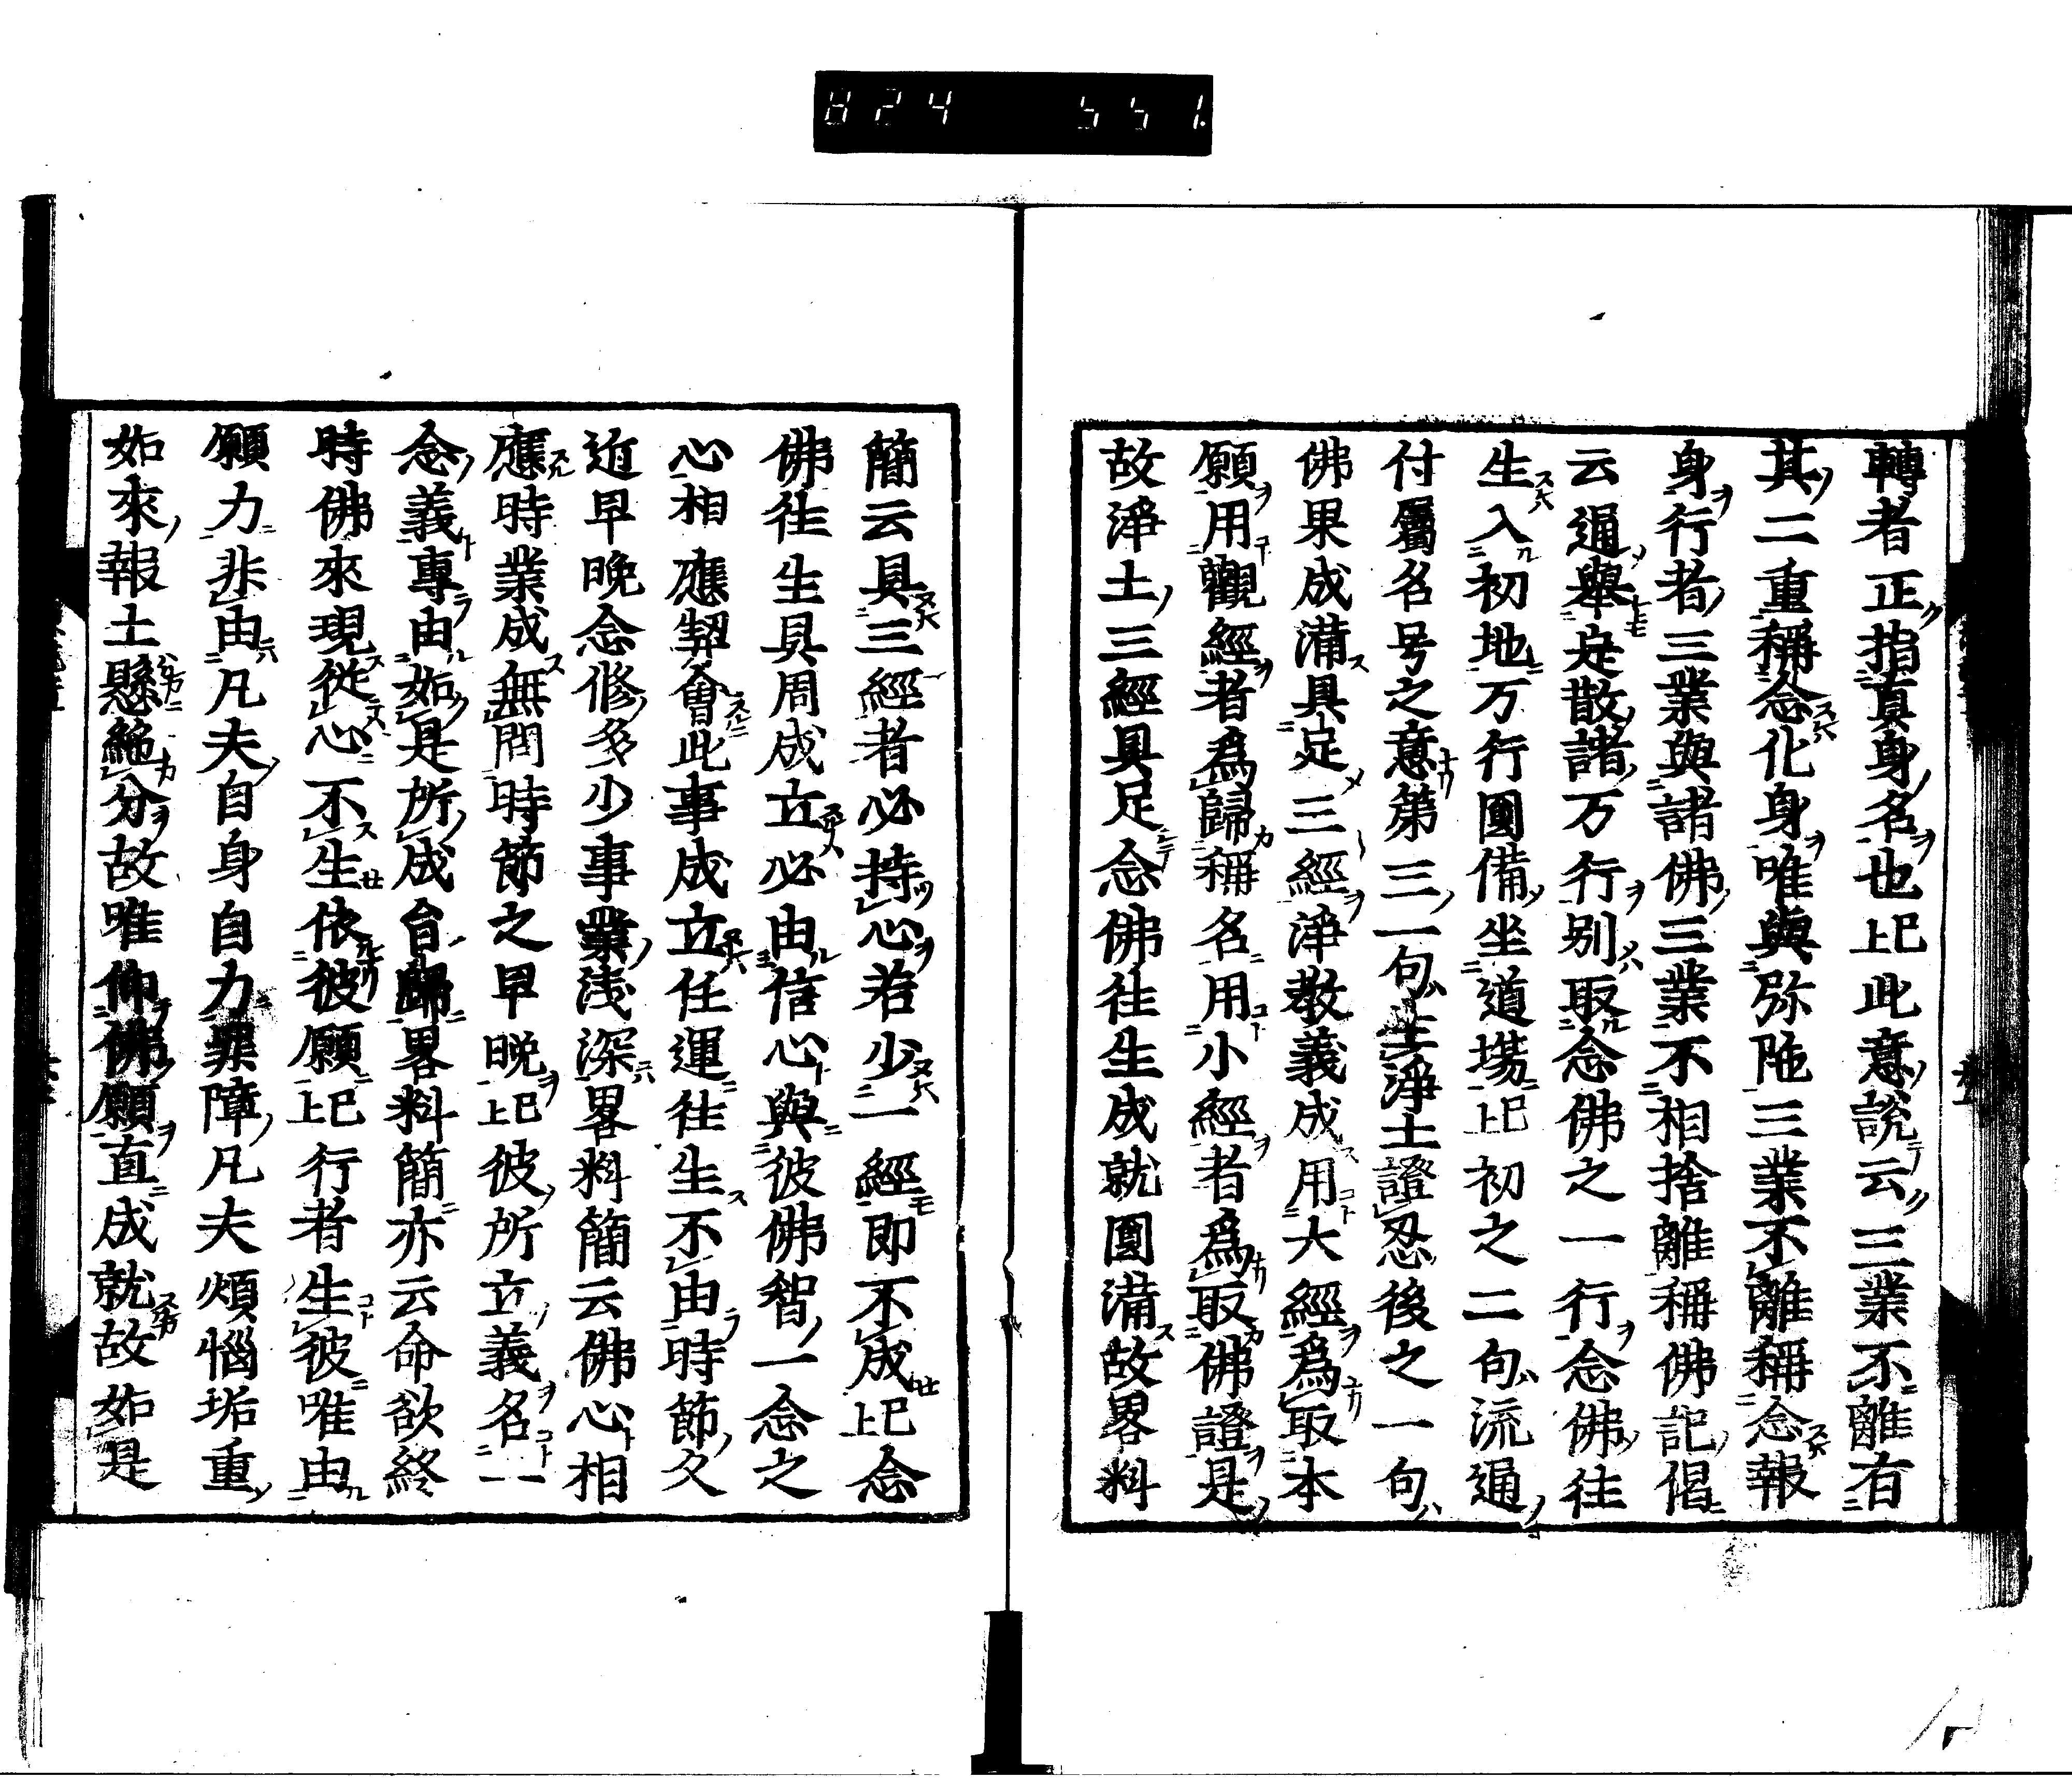 824 551
轉者正指真身名也已上此意說云三業不離有
其二重稱念化身唯與弥陁三業不離稱念報
身行者三業與諸佛三業不相捨離稱佛記偈
云通舉定散諸万行別取念佛之一行念佛往
生入初地万行圓備坐道場已上初之二句流通
付屬名号之意第三一句生淨土證忍後之一句
佛果成滿具足三經淨教義成用大經爲取本
願用觀經者爲歸稱名用小經者爲取佛證是
故淨土三經具足念佛往生成就圓滿故畧料
簡云具三經者必持心若少一經即不成已上念
佛往生具周成立必由信心與彼佛智一念之
心相應契會此事成立任運往生不由時節久
近早晚念修多少事業浅深畧料簡云佛心相
應時業成無問時節之早晚已上彼所立義名一
念義專由如是所成台歸畧料簡亦云命欲終
時佛來現從心不生依彼願已上行者生彼唯由
願力非由凡夫自身自力罪障凡夫煩惱垢重
如來報土懸絶分故唯仰佛願直成就故如是